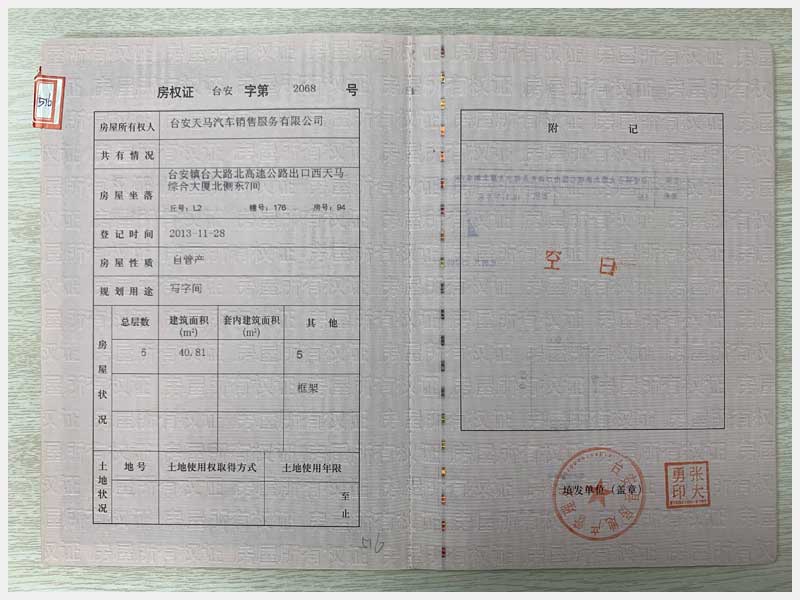 房权证 台安 字第 2068 号
516
房屋所有权人 台安天马汽车销售服务有限公司
共有情况
房屋坐落 台安镇台大路北高速公路出口西天马
综合大厦北侧东7间
丘号：L2 幢号：176 房号：94
登记时间 2013-11-28
房屋性质 自管产
规划用途 写字间
房屋状况
总层数 建筑面积 套内建筑面积 其他
(m²) (m²)
5 40.81 5
框架
土地状况
地号 土地使用权取得方式 土地使用年限
至
止
516
附记
空白
填发单位（盖章）
张大
勇印